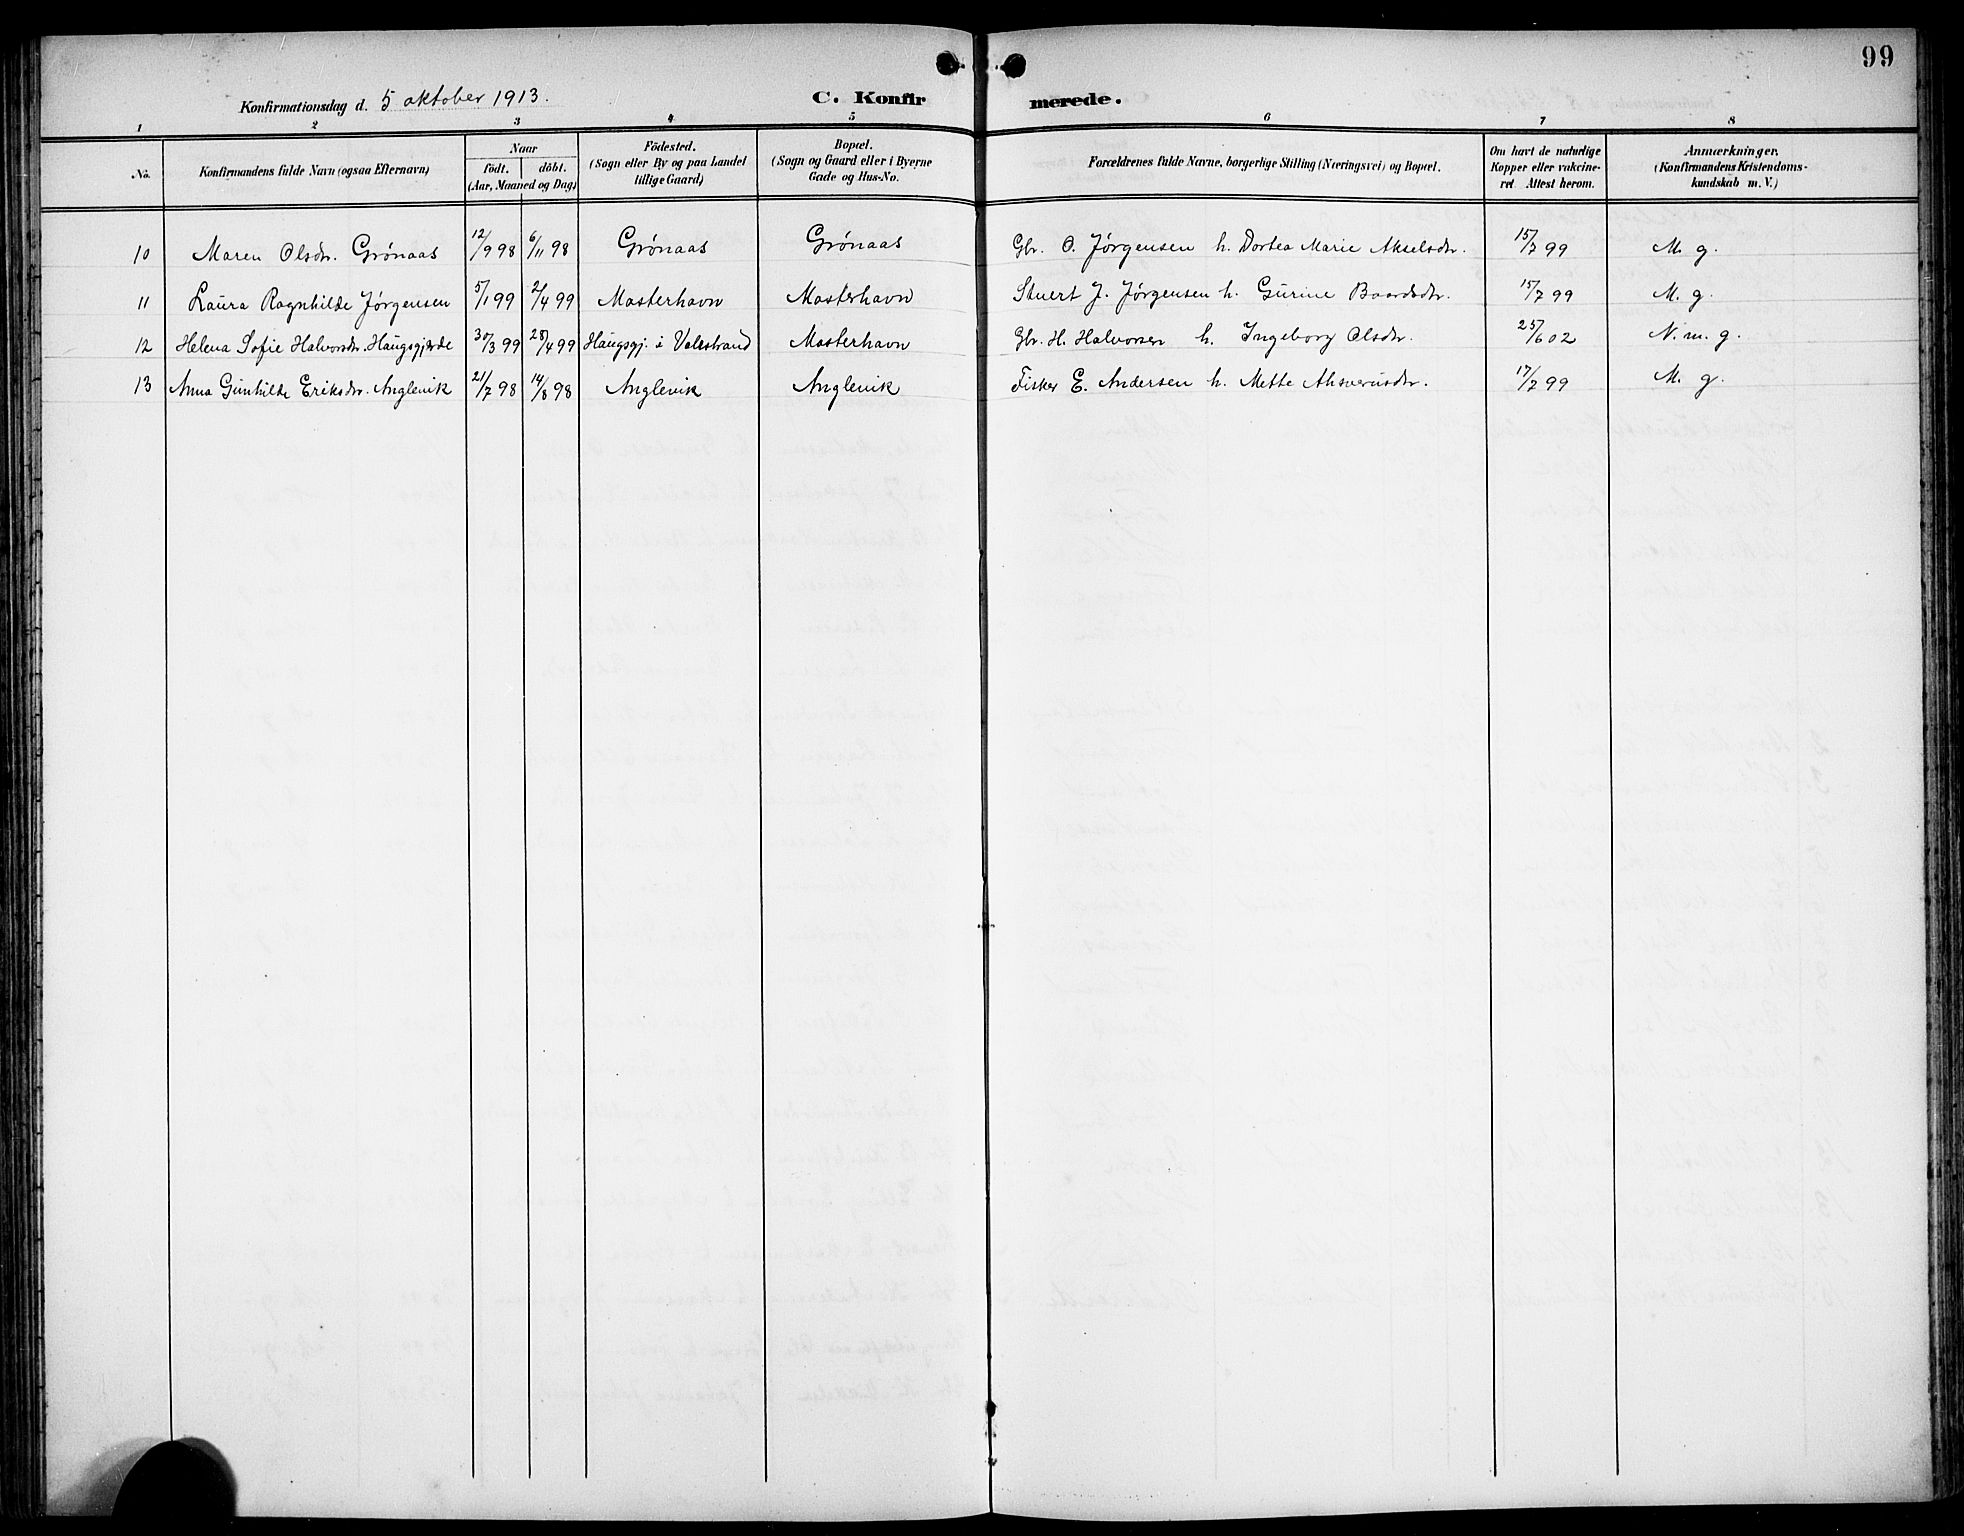 99
Konfirmationsdag d. 5 oktober 1913.
C. Konfir merede.
1 2 3 4 5 6 7 8
No.
Konfirmandens fulde Navn (ogsaa Efternavn)
Naar
födt. döbt.
(Aar, Maaned og Dag)
Födested.
(Sogn eller By og paa Landet
tillige Gaard)
Bopæl.
(Sogn og Gaard eller i Byerne
Gade og Hus-No.
Forældrenes fulde Navne, borgerlige Stilling (Næringsvei) og Bopæl.
Om havt de naturlige
Kopper eller vakcine-
ret. Attest herom.
Anmærkninger.
(Konfirmandens Kristendoms-
kundskab m. V.)
10 Maren Olsdr. Grønaas 12/9 98 6/11 98 Grønaas Grønaas Gbr. O. Jørgensen h. Dortea Marie Akselsdr. 15/7 99 M. g.
11 Laura Ragnhilde Jørgensen 5/1 99 2/4 99 Mosterhavn Mosterhavn Stuert J. Jørgensen h. Gurine Baardsdr. 15/7 99 M. g.
12 Helena Sofie Halvorsdr. Haugsgjerde 30/3 99 28/4 99 Haugsgj. i Valestrand Mosterhavn Gbr. H. Halvorsen h. Ingeborg Olsdr. 25/6 02 N. m. g.
13 Anna Gunhilde Eriksdr. Anglevik 21/7 98 14/8 98 Anglevik Anglevik Fisker E. Andersen h. Mette Ahsverusdr. 17/7 99 M. g.